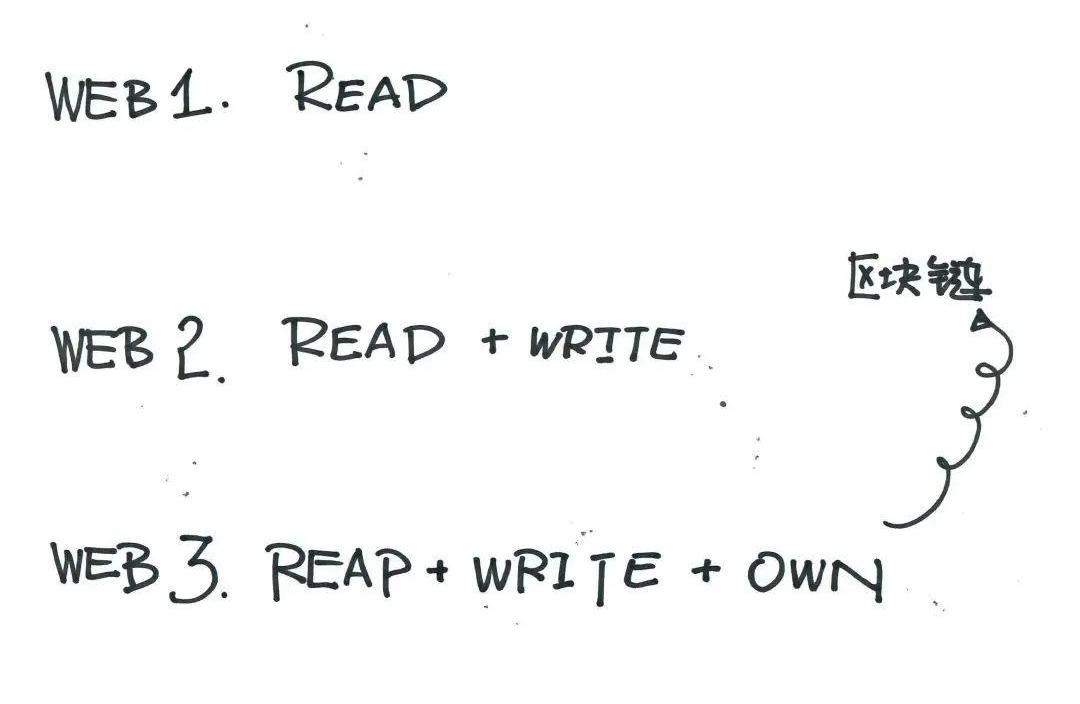 WEB 1. READ
区块链
WEB 2. READ + WRITE
WEB 3. REAP + WRITE + OWN